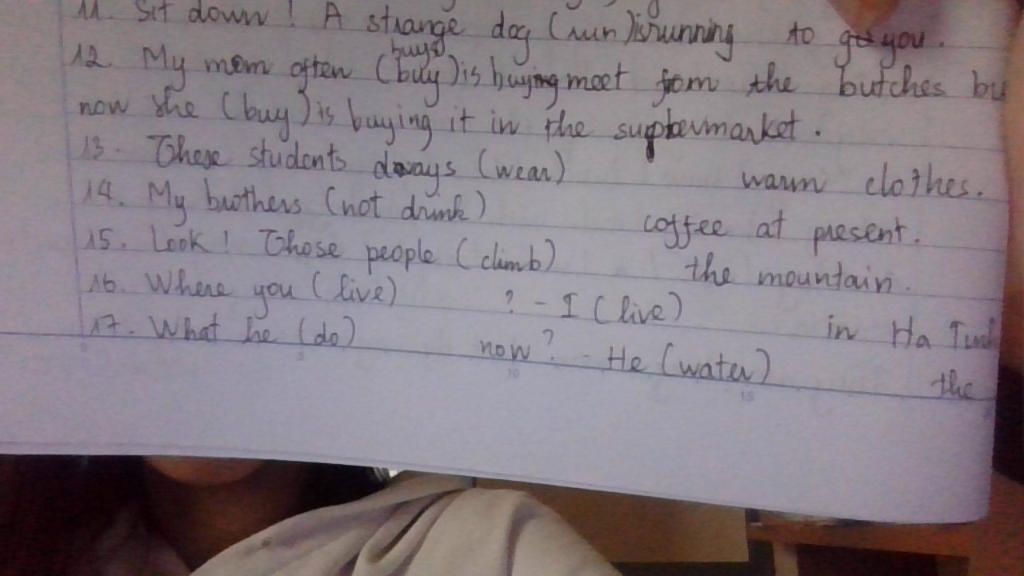 11. Sit down! A strange dog (run) is running to you.
buys
12. My mom often (buy) is buying meet from the butches bu
now she (buy) is buying it in the supbermarket.
13. These students always (wear) warm clothes.
14. My brothers (not drink) coffee at present.
15. Look! Those people (climb) the mountain.
16. Where you (live) ? - I (live) in Ha Tinh
17. What he (do) now? - He (water) the